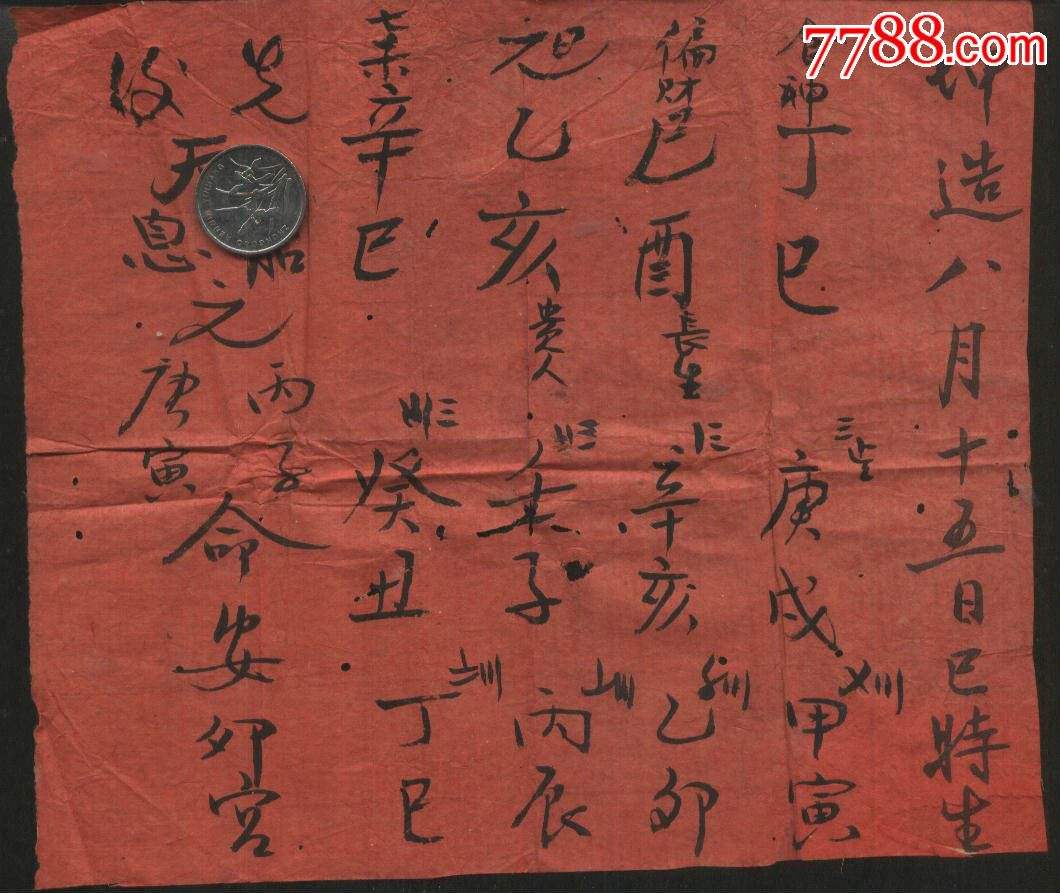 7788.com
坤造八月十五日巳時生
食神丁巳 庚戌 甲寅
偏財己酉長生 辛亥 乙卯
元乙亥貴人 壬子 丙辰
辛巳 癸丑 丁巳
先 胎 丙子
後天息之庚寅
命安卯宮